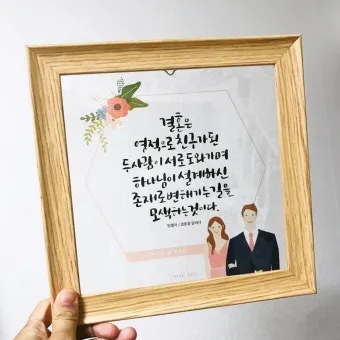 결혼은
영적으로 친구가 된
두 사람이 서로 도와가며
하나님이 설계하신
존재로 변해가는 길을
모색하는 것이다.
팀켈러 / 결혼을 말하다